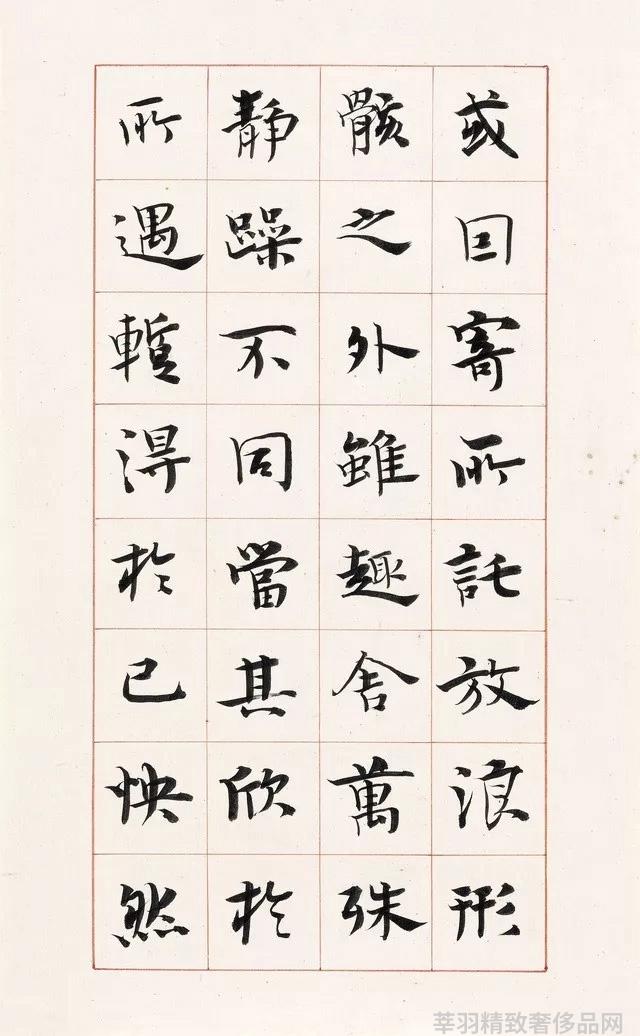 或囙寄所託放浪形
骸之外雖趣舍萬殊
静躁不同當其欣於
所遇蹔得於己怏然
莘羽精致奢侈品网